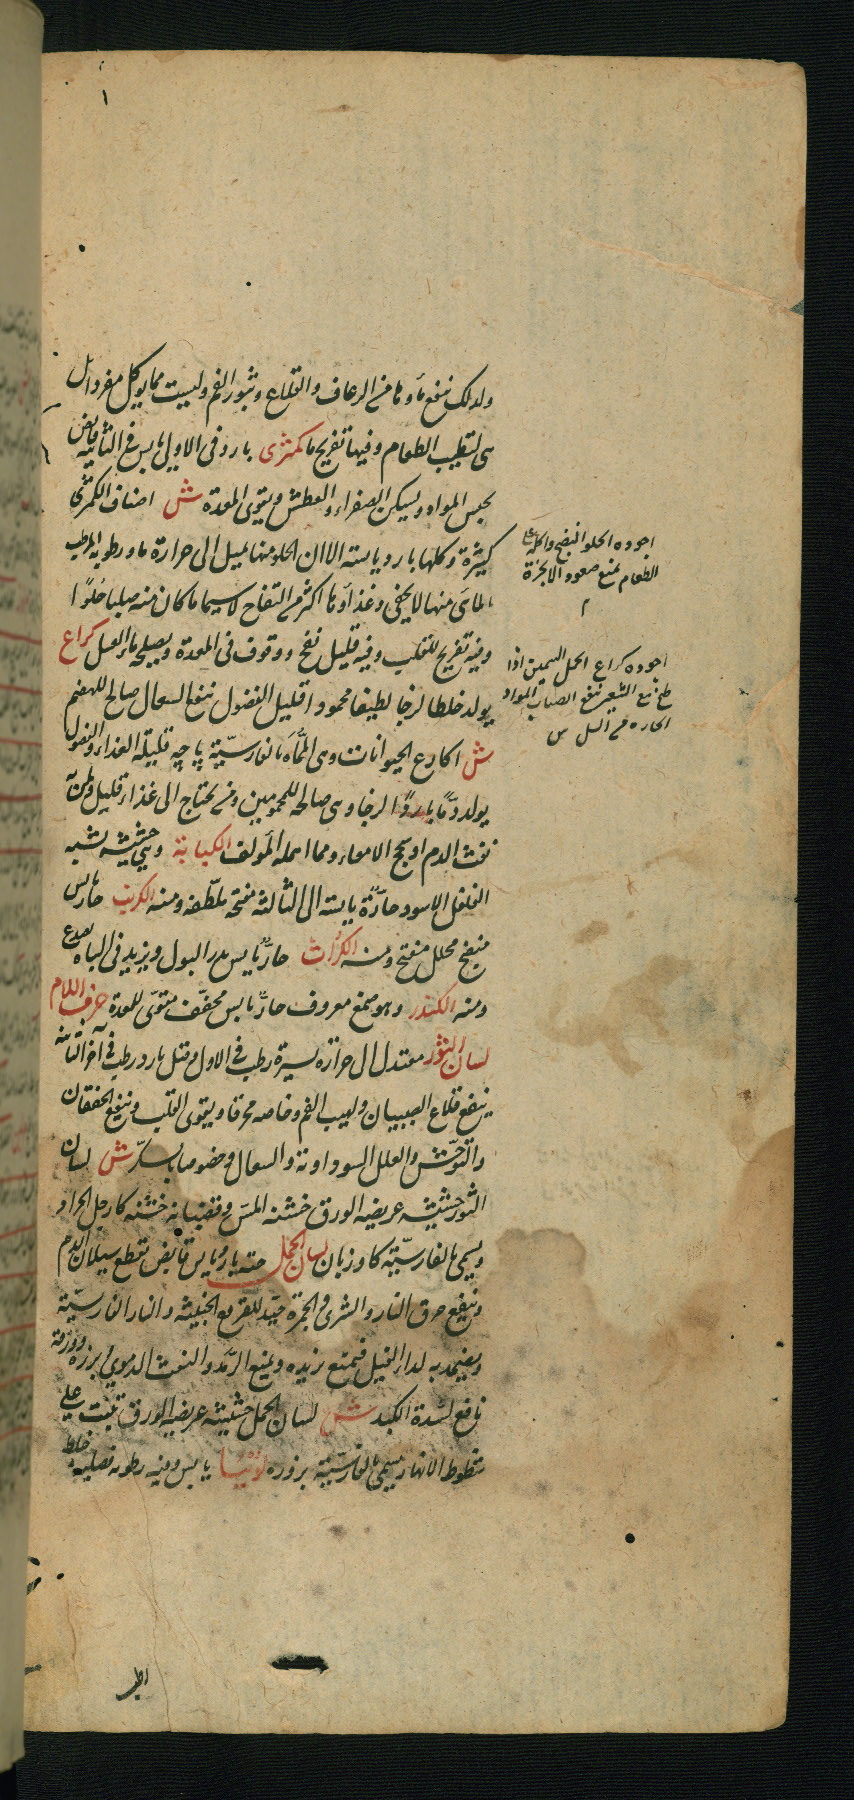 ولذلك ينفع ماؤها من الرعاف والقلاع وبثور الفم وليست مما يوكل مفردا بل
هى لتطيب الطعام وفيها تفريح ما كمثرى بارد فى الاولى يابس فى الثانية قابض
يحبس المواد ويسكن الصفراء والعطش ويقوى المعدة ش اصناف الكمثرى
كثيرة وكلها باردة يابسة الا ان الحلو منها يميل الى حرارة ما ورطوبة المرطب
المائى منها لا يخفى وغذاؤها اكثر من التفاح لا سيما ما كان منه صلبا حلوًا
وفيه تفريح للقلب وفيه قليل نفخ ووقوف فى المعدة ويصلحه ماء العسل كراع
يولد خلطا لزجا لطيفا محمودا قليل الفضول ينفع السعال صالح للهضم
ش اكارع الحيوانات وهى بالفارسيّة پاچه قليلة الغذاء والفضول
يولد دمًا باردًا لزجا وهى صالحة للمحمومين ومن يحتاج الى غذاء قليل ولمن به
نفث الدم او سحج الامعاء ومما اهمله المؤلف الكبابة وهى حشيشة تشبه
الفلفل الاسود حارّة يابسة الى الثالثة مفتحة ملطّفة ومنه الكرنب حار يابس
منضج محلل مفتح ومنه الكرّاث حارّ يابس يدر البول ويزيد فى الباه يصدع
ومنه الكندر وهو صمغ معروف حارّ يابس مجفّف مقوّى للمعدة حرف اللام
لسان الثور معتدل الى حرارة يسيرة رطب فى الاولى وقيل بارد رطب فى آخر الثانية
ينفع قلاع الصبيان ولهيب الفم وخاصه محرقا ويقوى القلب وينفع الخفقان
والتوحّش والعلل السوداوية والسعال وخصوصا بسكّر ش لسان
الثور حشيشه عريضه الورق خشنه المسّ وقضبانه خشنه كارجل الجراد
ويسمى بالفارسيّة كاو زبان لسان الحمل حبّه بارد يابس قابض يقطع سيلان الدم
وينفع حرق النار والشرى والجمرة جيّد للقروح الخبيثه والنار الفارسيّة
ويضمد به لداء الفيل فيمنع تزيده ويمنع الرمد والنفث الدموى وبزره وورقه
نافع لسدة الكبد ش لسان الحمل حشيشه عريضه الورق تنبت على
شطوط الانهار يسمى بالفارسيّة لوبيا يابس وفيه رطوبه فضليه
اجوده الحلو النضيج واكله
الطعام يمنع صعود الابخرة
م
اجوده كراع الحمل السمين اذا
طبخ مع الشعير ينفع المواد
الحاره من السل س